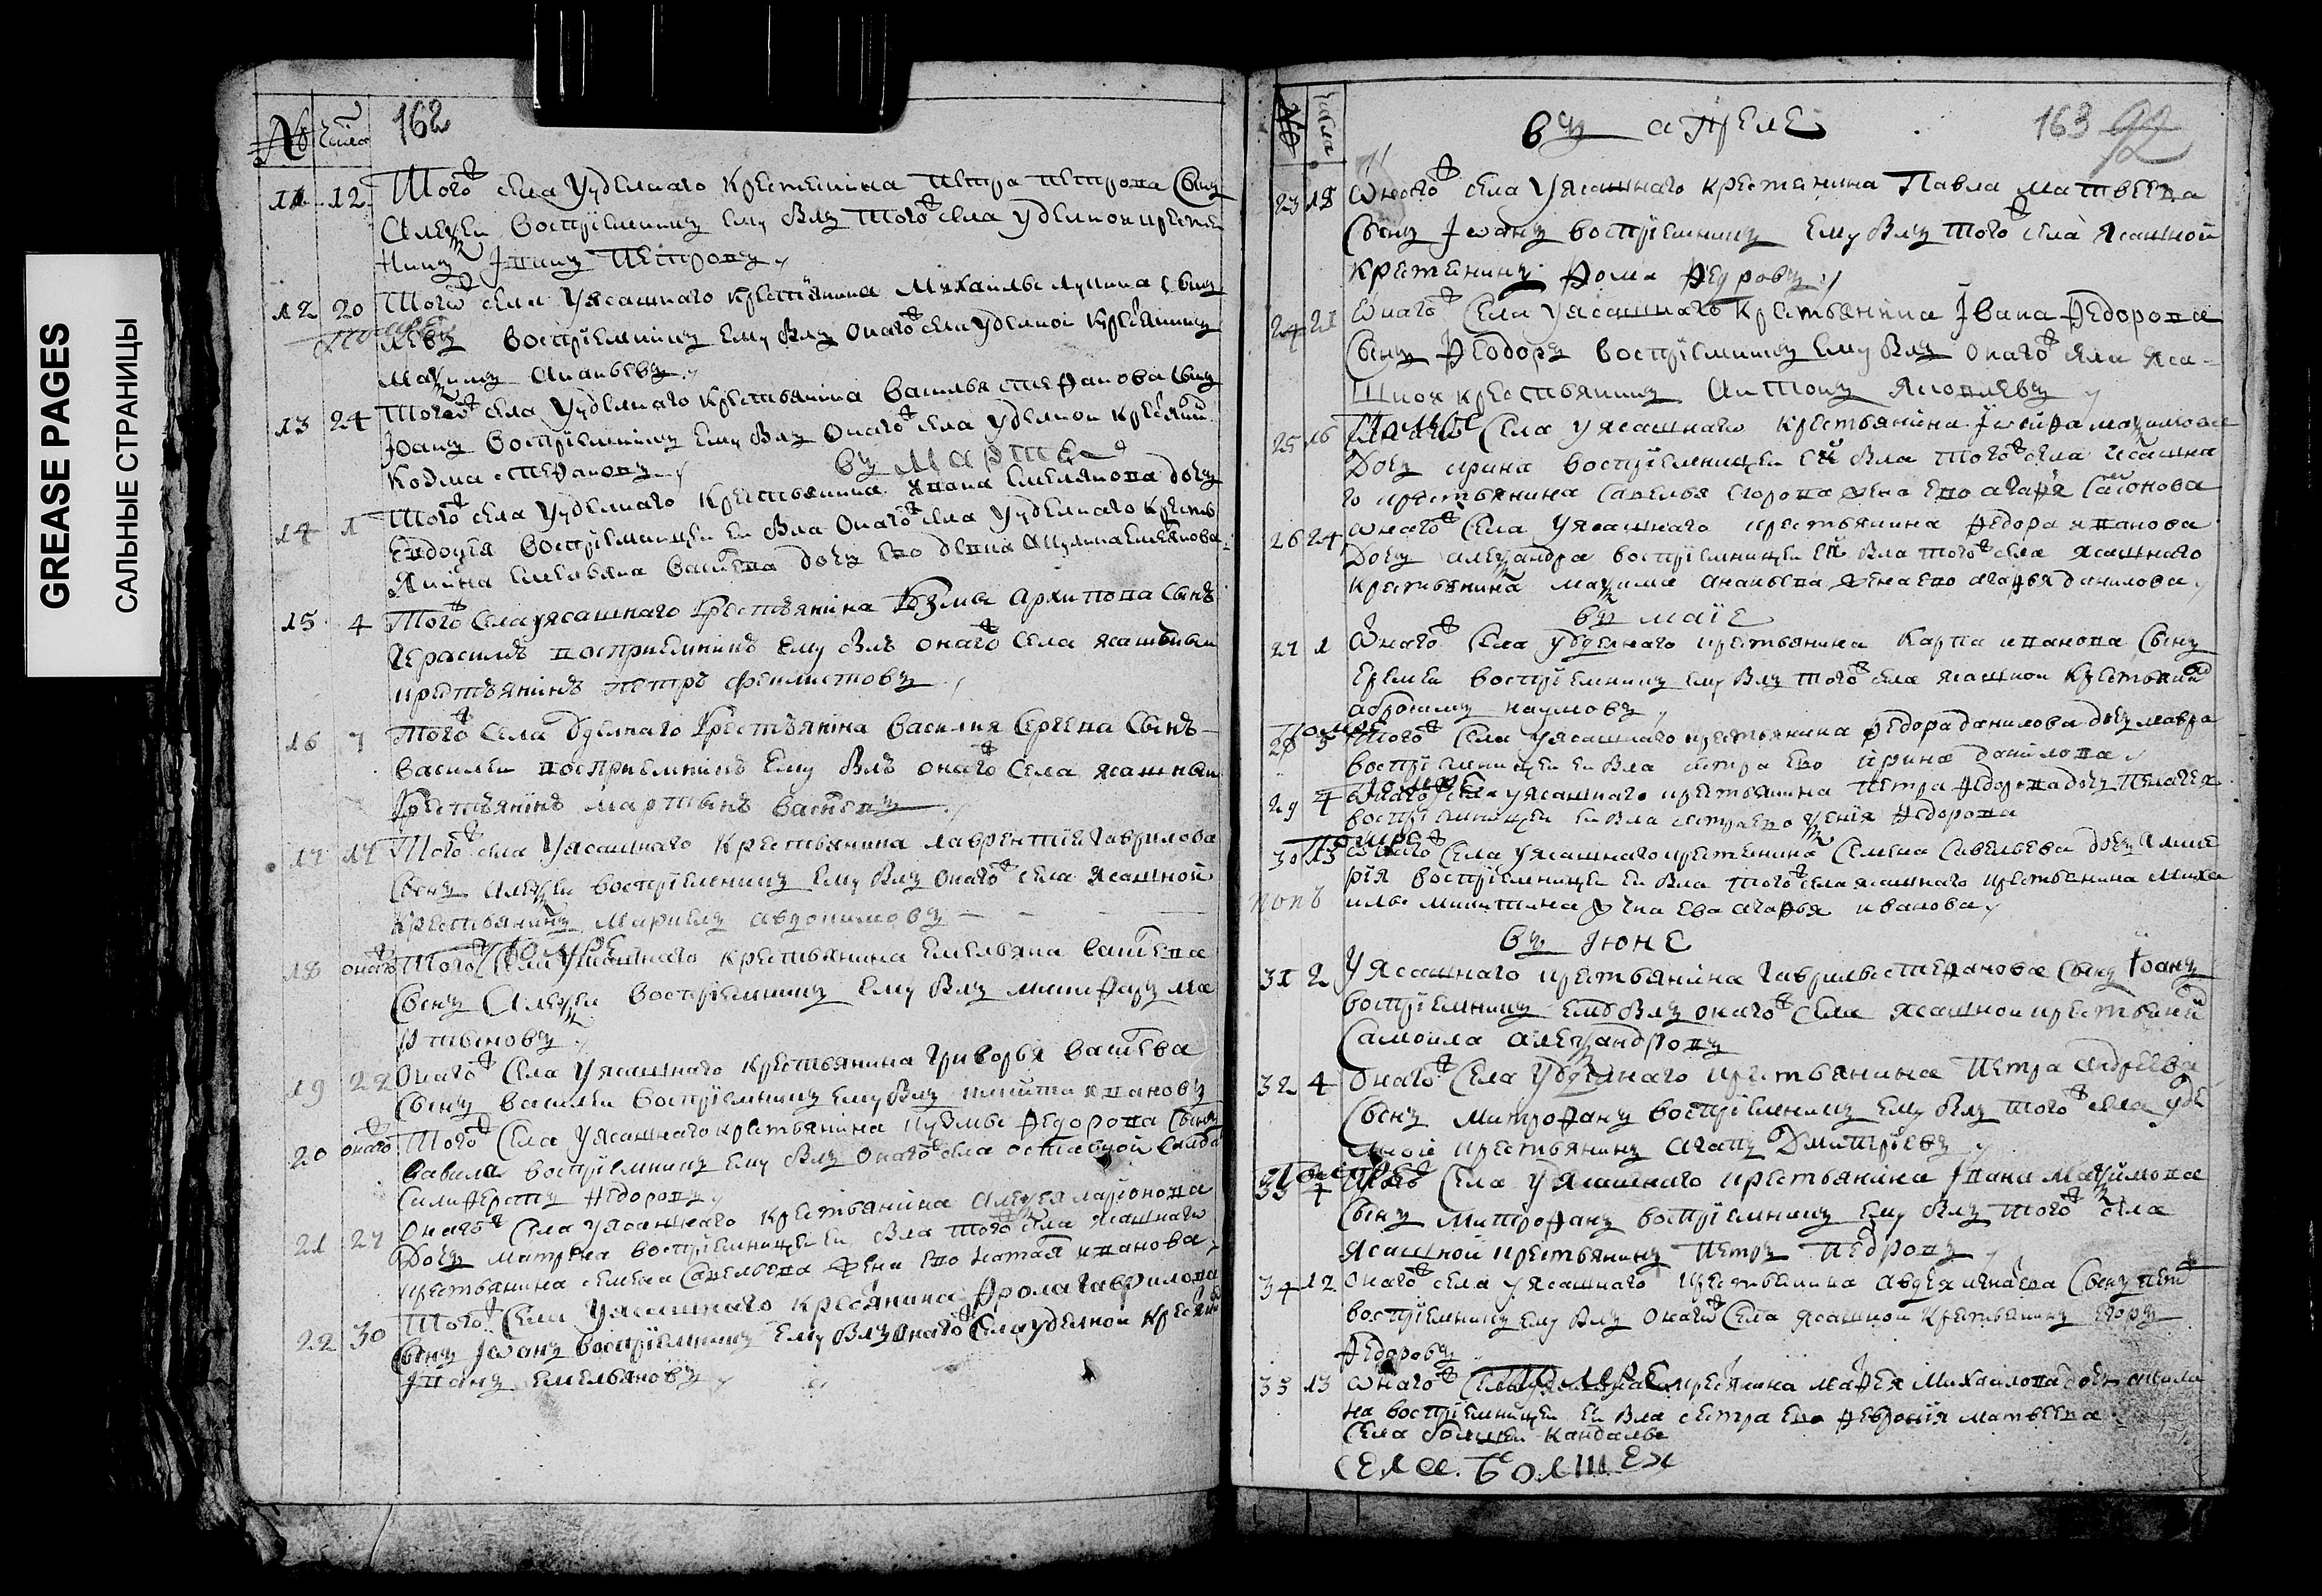 GREASE PAGES
САЛЬНЫЕ СТРАНИЦЫ
№ числа 162
11 12 Тогоѣ села Удѣлнаго крестенина Петра Петрова сынъ
Алеѯеи воспріемникъ ему былъ тогоѣ села удѣлнои крестея
нинъ Іванъ Петровъ
12 20 Тогоѣ села Уясашнаго крестіянина Михаилы Лупина сынъ
Помре
Левъ воспріемникъ ему былъ онагоѣ села удѣлноі кресянинъ
Маѯимъ Ананьевъ
13 24 Тогоѣ села Уудѣлнаго крестьянина Василья Степанова сынъ
Іоанъ воспріемникъ ему былъ онагоѣ села удѣлнои кресяни
Козма Степановъ
въ Марте
14 1 Тогоѣ села Уудѣлнаго крестьянина Івана Емелянова дочь
Евдоцея воспріемницеи ей была онагоѣ села Уудѣлнаго кресть
янина Емельяна дочь ево девка Акулина Емелянова
15 4 Тогоѣ села уясашнаго крестьянина Козмы Архипова сынъ
Герасимъ восприемникъ ему былъ онагоѣ села ясашныи
крестьянинъ Петръ Феилистовъ
16 7 Тогоѣ села Удѣлнаго крестьянина Василия Сергева сынъ
Василеи восприемникъ ему былъ онагоѣ села ясашныи
крестьянинъ Мартынъ
17 17 Тогоѣ села Уясашнаго крестьянина Лаврентие Гаврилова
сынъ Алеѯеи воспріемникъ ему былъ онагоѣ села ясашнои
крестьянинъ Маркелъ Авдокимовъ
18 онагоѣ Тогоѣ села Уясашнаго крестьянина Емельяна
Помре
сынъ Алеѯеи воспріемникъ ему былъ Никифаръ Ма
ртыновъ
19 22 Онагоѣ села Уясашнаго крестьянина Григорья
сынъ Василеи воспріемникъ ему былъ Никита Ивановъ
20 онагоѣ Тогоѣ села Уясашнаго крестьянина Кузмы Федорова сынъ
Вавила воспріемникъ ему былъ онагоѣ села оставнои салдатъ
Силиферстъ Федоровъ
21 27 Онагоѣ села уясашнаго крестьянина Алеѯея Ларионова
дочь Матрена воспріемницеи ей была тогоѣ села ясашнаго
крестьянина Семена Савельева жена ево Наталя Иванова
22 30 Тогоѣ села Уясашнаго кресянина Фрола Гаврилова
сынъ Іоанъ воспріемникъ ему былъ онагоѣ села удѣлнои кресяни
Іванъ Емельяновъ
№ числа въ апрелѣ 163 92
23 18 Онагоѣ села Уясашнаго крестянина Павла Матвеева
сынъ Іоанъ воспріемникъ ему былъ тогоѣ села ясашной
крестянинъ Фома Федровъ
24 21 Онагоѣ села уясашнаго крестьянина Івана Федорова
сынъ Феодоръ воспріемникъ ему былъ онагоѣ села яса-
шнои крестьянинъ Антонъ Яковлевъ
Помре
25 16 села уясашнаго крестьянина Маѯимова
дочь Ирина воспріемницеи ей была тогоѣ села ясашна
го крестьянина Савелья Егорова жена ево Агафя
26 24 онагоѣ села уясашнаго крестьянина Федора Иванова
дочь Алеѯандра воспріемницеи ей была тогоѣ села ясашнаго
крестьянина Маѯима Ананьева жена ево Агафья Данилова
въ маіе
27 1 Онагоѣ села Уудѣлнаго крестьянина Карпа Иванова сынъ
Еремеи воспріемникъ ему былъ тогоѣ села ясашнои крестьяни
Абросимъ Наумовъ
Помре
28 3 Тогоѣ села уясашнаго крестьянина Федора Данилова дочь Мавра
воспріемницеи ей была сестра ево Ирина Данилова
Помре
29 4 онагоѣ села уясашнаго крестьянина Петра Федорова дочь Пелагея
воспріемницеи ей была сестра ево Федорова
Помре
30 13 онагоѣ села уясашнаго крестьянина Семена Савельева дочь Глике
рія воспріемницеи ей была тогоѣ села ясашнаго крестьянина Миха
илы Никитина жена ева Агафья Иванова
въ июнѣ
31 2 Уясашнаго крестьянина Гаврилы Степанова сынъ Іоанъ
воспріемникъ ему былъ онагоѣ села ясашнои крестьяни
Самоила Алеѯандровъ
32 4 Онагоѣ села Уудѣлнаго крестьянина Петра Андреева
сынъ Митрофанъ воспріемникъ ему былъ тогоѣ села удѣ
лноіе крестьянинъ Агапъ Дмитріевъ
Помре
33 4 села Уясашнаго крестьянина Івана Маѯимова
сынъ Митрофанъ воспріемникъ ему былъ тогоѣ села
ясашной крестьянинъ Петръ Педровъ
34 12 онагоѣ села уясашнаго крестьянина Авдея Игнаева сынъ Петръ
воспріемникъ ему былъ онагоѣ села ясашнои крестьянинъ Егоръ
Федоровъ
Помре
35 13 онагоѣ села уясашнаго кресянина Мафея Михаилова дочь Акили
на воспріемницеи ей была сестра ево Февронія Матвеева
Села болшеи Кандалы
села. Болшеи